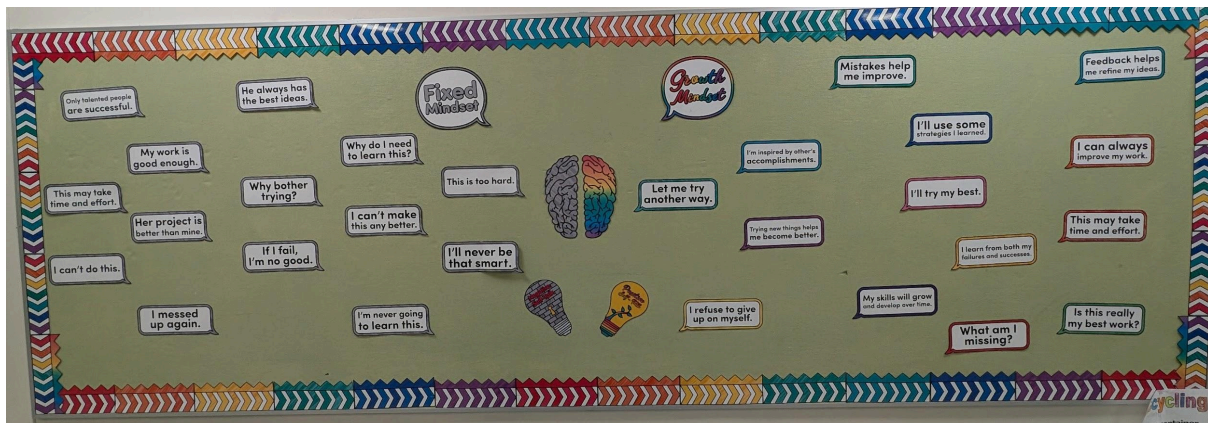 Fixed
Mindset
Only talented people
are successful.
He always has
the best ideas.
My work is
good enough.
Why do I need
to learn this?
This is too hard.
This may take
time and effort.
Why bother
trying?
Her project is
better than mine.
I can't make
this any better.
I can't do this.
If I fail,
I'm no good.
I'll never be
that smart.
I messed
up again.
I'm never going
to learn this.
Growth
Mindset
Mistakes help
me improve.
Feedback helps
me refine my ideas.
I'll use some
strategies I learned.
I'm inspired by other's
accomplishments.
I can always
improve my work.
Let me try
another way.
I'll try my best.
Trying new things helps
me become better.
This may take
time and effort.
I learn from both my
failures and successes.
I refuse to give
up on myself.
My skills will grow
and develop over time.
What am I
missing?
Is this really
my best work?
cycling